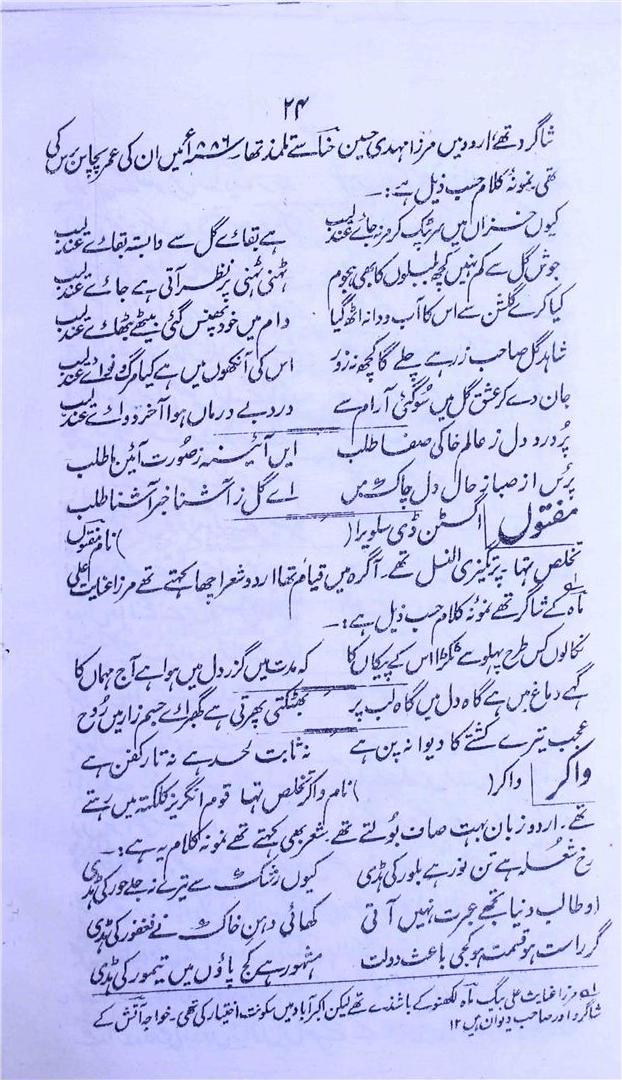 ۲۴
شاگرد تھے، اردو میں مرزا مہدی حسین خاں سے تلمذ تھا ۱۸۸۶ء میں ان کی عمر پچاس برس کی
تھی۔ نمونۂ کلام حسب ذیل ہے:۔
کیوں خزاں میں سر پٹک کر مر نہ جائے عندلیب    ہے بقائے گل سے وابستہ بقائے عندلیب
جوش گل سے کم نہیں کچھ بلبلوں کا بھی ہجوم    ٹہنی ٹہنی پر نظر آتی ہے جائے عندلیب
کیا کرے گلشن سے اس کا آب و دانہ اٹھ گیا    دام میں خود پھنس گئی بیٹھے بٹھائے عندلیب
شاہد گل صاحب زر ہے چلے گا کچھ نہ زور    اس کی آنکھوں میں ہے کیا مرگ و نوائے عندلیب
جان دے کر عشق گل میں سو گئی آرام سے    درد بے درماں ہوا آخر دوائے عندلیب
پر درد دل ز عالم خاکی صفا طلب    ایں آئینہ ز صورت آئیں ما طلب
پرس از صبا ز حال دل چاک من    اے گل ز آشنا خبر آشنا طلب
مفتوں    اگسٹن ڈی سلویرا (    ) نام مفتوں
تخلص تھا۔ پرتگیزی النسل تھے۔ آگرہ میں قیام تھا اردو شعر اچھا کہتے تھے مرزا عنایت علی
ماہ لہ کے شاگرد تھے نمونۂ کلام حسب ذیل ہے:۔
نکالوں کس طرح پہلو سے ٹکڑا اس کے پیکاں کا    کہ مدت میں گزر دل میں ہوا ہے آج مہماں کا
گہے دماغ میں ہے گاہ دل میں گاہ لب پر    بھٹکتی پھرتی ہے گھبرائے جسم زار میں روح
عجب تیرے کشتے کا دیوانہ پن ہے    نہ ثابت لحد ہے نہ تار کفن ہے
واکر    واکر (    ) نام واکر تخلص تھا قوم انگریز کلکتہ میں رہتے
تھے۔ اردو زبان بہت صاف بولتے تھے۔ شعر بھی کہتے تھے نمونۂ کلام یہ ہے:۔
رخ شعلہ ہے تن نور ہے بلور کی ہڈی    کیوں رشک سے تیرے نہ جلے حور کی ہڈی
او طالب دنیا تجھے عبرت نہیں آتی    کھائی دہن خاک نے فغفور کی ہڈی
گر راست ہو قسمت ہو کجی باعث دولت    مشہور ہے کج پاؤں میں تیمور کی ہڈی
لہ مرزا عنایت علی بیگ ماہ لکھنؤ کے باشندے تھے لیکن اکبرآباد میں سکونت اختیار کی تھی۔ خواجہ آتش کے
شاگرد اور صاحب دیوان ہیں ۱۲